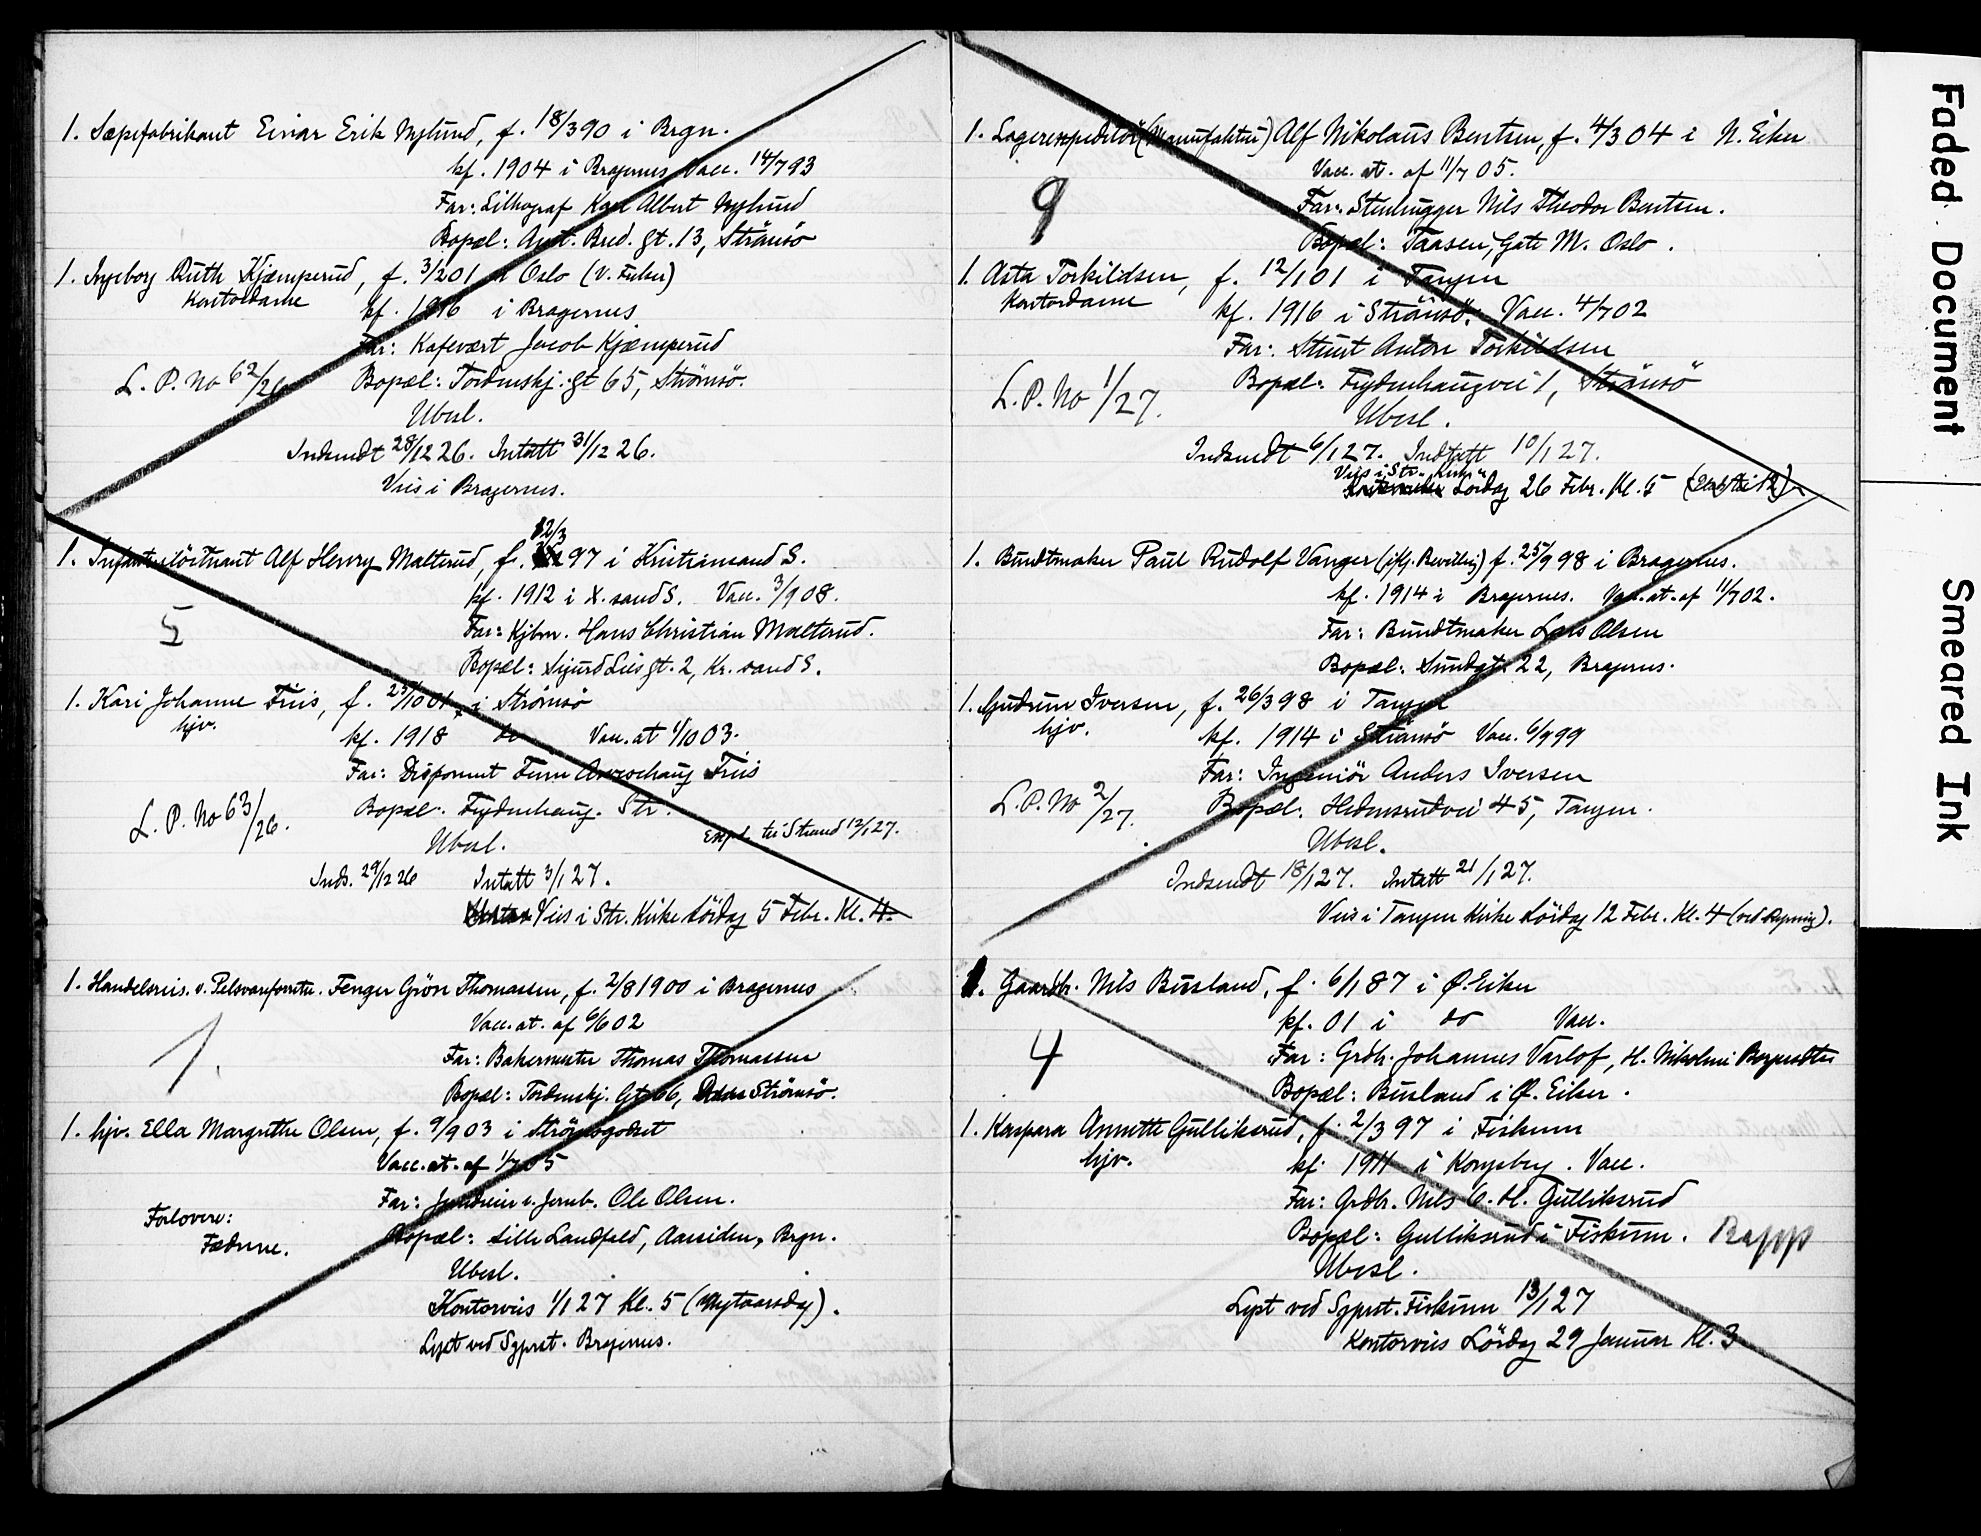 1. Sæpefabrikant Einar Erik Nylund, f. 18/3 90 i Brgn.
kf. 1904 i Bragernes Vacc. 14/7 93
Far: Lithograf Karl Albert Nylund
Bopæl: Aust. Bred. gt. 13, Strömsö
1. Ingeborg Ruth Kjæmperud, f. 3/2 01 i Oslo (V. Fisker)
Kontordame kf. 1916 i Bragernes
Far: Kafevært Jacob Kjæmperud
L. P. No 62/26 Bopæl: Tordenskj. gt 65, Strömsö.
Ubesl.
Indsendt 28/12 26. Intatt 31/12 26.
Vies i Bragernes.
12/3
1. Infanteriløitnant Alf Henry Malterud, f. 97 i Kristiansand S.
kf. 1912 i X.sand S. Vacc. 3/9 08.
5 Far: Kjbm. Hans Christian Malterud.
Bopæl: Sigurd Lies gt. 2, Kr.sand S.
1. Kari Johanne Friis, f. 25/10 01 i Strömsö
hjv. kf. 1918 do Vacc. at 1/10 03.
Far: Disponent Finn Averschaug Friis
L. P. No 63/26. Bopæl: Frydenhaug. Str.
Ubesl. Eksp. til Strand 12/1 27.
Inds. 29/12 26 Intatt 3/1 27.
Vies i Str. Kirke Lördag 5 Febr. Kl. 4.
1. Handelsreis. v. Pelsvareforretn. Fenger Grön Thomassen, f. 2/8 1900 i Bragernes
Vacc. at. af 6/6 02
1. Far: Bakermester Thomas Thomassen
Bopæl: Tordenskj. Gt. 66, Strömsö.
1. hjv. Ella Margrethe Olsen, f. 9/9 03 i Strömsgodset
Vacc. at. af 1/7 05
Far: v. Jernb. Ole Olsen.
Forlovere:
Fædrene. Bopæl: Lille Landfald, Aassiden, Brgn.
Ubesl.
Kontorvies 1/1 27 Kl. 5 (Nytaarsdag).
Lyst ved Sgprst. Bragernes.
1. Lagerexpeditör (Manufaktur) Alf Nikolaus Bentsen, f. 4/3 04 i N. Eiker
Vacc. at. af 11/7 05.
9 Far: Stenhugger Nils Theodor Bentsen.
Bopæl: Taasen, Gate M. Oslo.
1. Asta Torkildsen, f. 12/1 01 i Tangen
Kontordame kf. 1916 i Strömsö. Vacc. 4/7 02
Far: Anton Torkildsen
L. P. No 1/27. Bopæl: Frydenhaugvei 1, Strömsö
Ubesl.
Indsendt 6/1 27. Indtatt 10/1 27.
Vies i Str. Kirke
Lördag 26 Febr. Kl. 5
1. Bundtmaker Paul Rudolf Vanger (iflg. Bevilling) f. 25/9 98 i Bragernes.
kf. 1914 i Bragernes. Vacc. at. af 11/7 02.
Far: Bundtmaker Lars Olsen
Bopæl: Sundgt. 22, Bragernes.
1. Gudrun Iversen, f. 26/3 98 i Tangen
hjv. kf. 1914 i Strömsö Vacc. 6/9 99
Far: Ingeniör Anders Iversen
L. P. No 2/27. Bopæl: Hedensrudvei 45, Tangen.
Ubesl.
Indsendt 18/1 27. Intatt 21/1 27.
Vies i Tangen Kirke Lördag 12 Febr. Kl. 4
1. Gaardbr. Nils Busland, f. 6/1 87 i Ø. Eiker
kf. 01 i do Vacc.
4 Far: Grdbr. Johannes Varlof, H. Nikoline
Bopæl: Busland i Ø. Eiker.
1. Kaspara Annette Gulliksrud, f. 2/3 97 i Fiskum
hjv. kf. 1911 i Kongsberg. Vacc.
Far: Grdbr. Nils C. H. Gulliksrud
Bopæl: Gulliksrud i Fiskum. Rapp
Ubesl.
Lyst ved Sgprst. Fiskum 13/1 27
Kontorvies Lördag 29 Januar Kl. 3
Faded Document
Smeared Ink